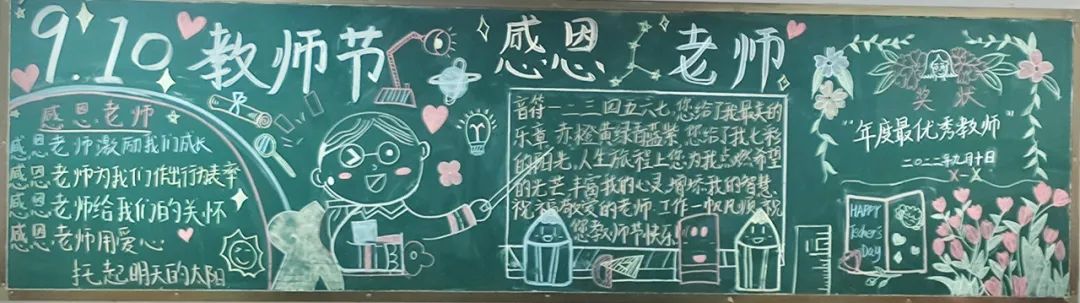 9.10 教师节
感恩 老师
感恩老师
感恩老师激励我们成长
感恩老师为我们作出行为表率
感恩老师给我们的关怀
感恩老师用爱心
托起明天的太阳
音符一二三四五六七,您给了我最美的
乐章 赤橙黄绿青蓝紫 您给了我七彩
的阳光,人生旅程上您为我点燃希望
的光芒 丰富我的心灵 增添我的智慧.
祝福敬爱的老师 工作一帆风顺 祝
您教师节快乐
奖状
"年度最优秀教师"
二〇二二年九月十日
X-X
HAPPY
Teacher's
DAY